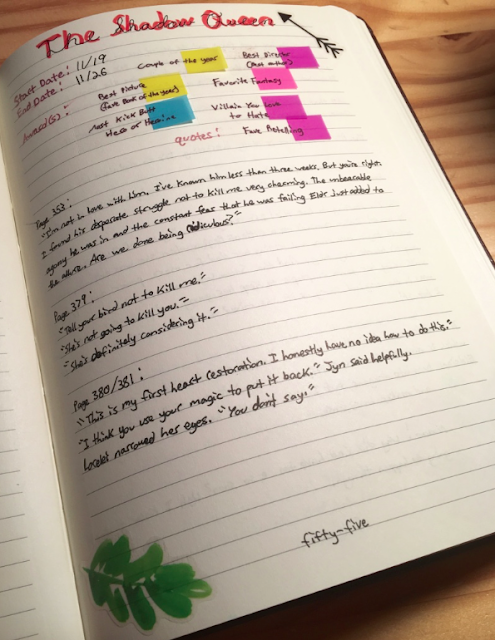 The Shadow Queen
Start Date: 11/19
End Date: 11/26
Award(s):
Couple of the year
Best Director
(Best author)
Best Picture
(Fave Book of the year)
Favorite Fantasy
Most Kick Butt
Hero or Heroine
Villain You Love
to Hate
Fave Retelling
quotes:
Page 353:
"I'm not in love with him. I've known him less than three weeks. But you're right,
I found his desperate struggle not to kill me very charming. The unbearable
agony he was in and the constant fear that he was failing Eldr just added to
the allure. Are we done being ridiculous?"
Page 379:
"Tell your bird not to kill me."
"She's not going to kill you."
"She's definitely considering it."
Page 380/381:
"This is my first heart restoration. I honestly have no idea how to do this."
"I think you use your magic to put it back." Jyn said helpfully.
Lorelai narrowed her eyes. "You don't say."
fifty-five